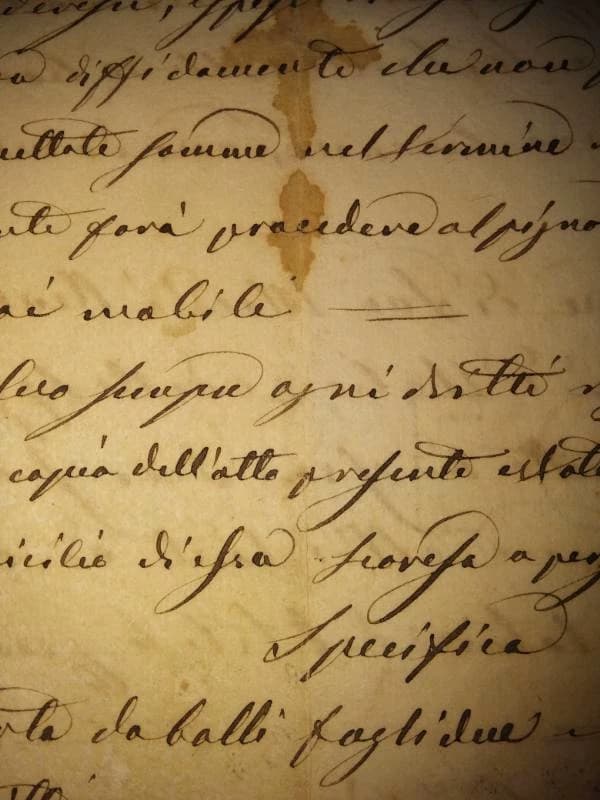 a diffidamente che non
nettate somme nel termine
nte farà procedere al pigno
ei mobili
lvo sempre ogni dritto
copia dell'atto presente è stata
icilio di essa a per
Specifica
rta da bolli fogli due